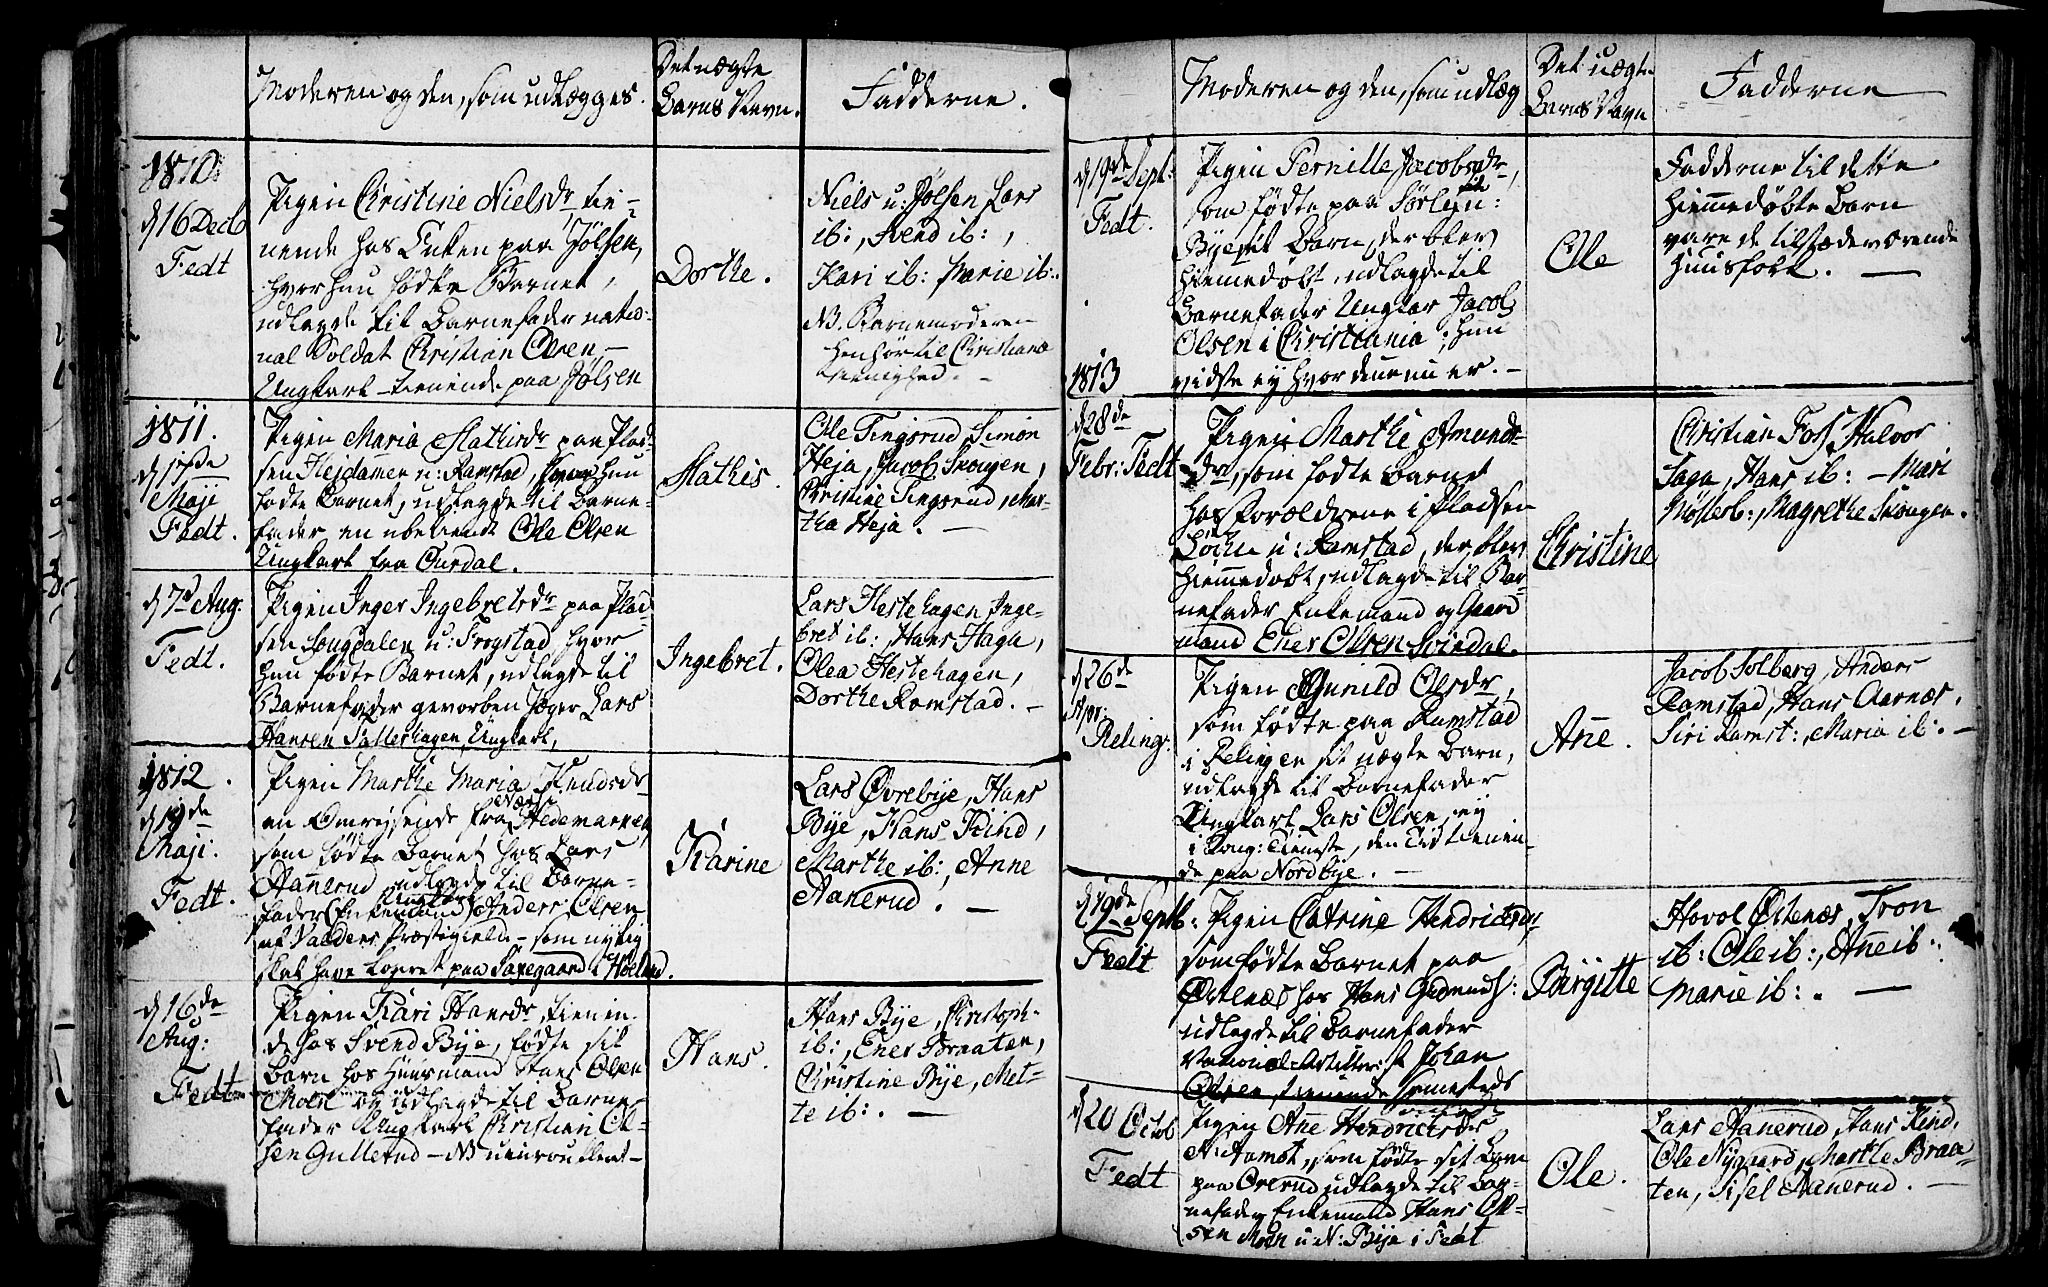 Moderen og den, som udlægges.
Det uægte
Barns Navn.
Fadderne.
1810
d 16 Decb
Fedt
Pigen Christine Nielsdr tie-
nende hos Enken paa Jølsen,
hvor hun fødte Barnet,
udlagde til Barnefader natio-
nal Soldat Christian Olsen -
Ungkarl - tienende paa Jølsen
Dorthe.
Niels u: Jølsen Lars
ib:, Svend ib:,
Kari ib: Marie ib:.
NB. Barnemoderen
henhør til Christiana
Meenighed. -
1811.
Maji
Fedt.
Pigen Maria Mathisdr paa Plad-
sen Hejdammen u: Ramstad, hvor hun
fødte Barnet, udlagde til Barne-
fader en ubekiendt Ole Olsen
Ungkarl fra Ourdal.
Mathis.
Ole Tingsrud, Simon
Heja, Jacob Skougen,
Christine Tingsrud, Mar-
tha Heja. -
d 7d Aug:
Fedt.
Pigen Inger Ingebretsdr paa Plad
sen Lougdalen u: Frogstad, hvor
hun fødte Barnet, udlagde til
Barnefader gevorben Jæger Lars
Hansen Ungkarl,
Ingebret.
Lars Hestehagen, Inge-
bret ib:, Hans Haga,
Olea Hestehagen,
Dorthe Ramstad. -
1812.
d 19de
Maji.
Fedt.
Pigen Marthe Maria Knudsdr
en Omrejsende fra Hedemarken
som fødte Barnet hos Lars
Aanerud, udlagde til Barne-
fader Enkemand Anders Olsen
af Valders Præstegield - som nylig
skal have logeret paa i Høland.
Karine
Lars Øvrebye, Hans
Bye, Hans Kind,
Marthe ib:, Anne
Aanerud. -
d 16de
Aug:
Fedt
Pigen Kari Hansdr, tienen-
de hos Svend Bye, fødte sit
Barn hos Huusmand Hans Olsen
Moen og udlagde til Barne-
fader Ungkarl Christian Ol-
sen Gullerud - NB
Hans.
Hans Bye, Christoph:
ib:, Ener Braaten,
Christine Bye, Met-
te ib:. -
Moderen og den, som udlæg
Det uægte
Barns Navn
Fadderne
d 19de Sept:
Fedt.
Pigen Pernille Jacobsdr,
som fødte paa Sørlejn:
Bye sit Barn, der blev
hiemedøbt, udlagde til
Barnefader Ungkar Jacob
Olsen i Christiania; hun
vidste ej hvor denne nu er. -
Ole
Fadderne til dette
hiemmedøbte Barn
vare de tilstædeværende
Huusfolk. -
1813
d 28de
Febr: Fedt
Pigen Marthe Amunds-
dr, som fødte Barnet
hos Forældrene i Pladsen
u: Ramstad, der blev
hiemmedøbt, udlagde til Bar-
nefader Enkemand og Gaard
mand Ener Olsen Svindal.
Christine
Christian Foss, Halvor
Saga, Hans ib: - Mari
Møllerb:, Magrethe Skougen.
d 26de
Apr:
Reling:
Pigen Gunild Olsdr,
som fødte paa Ramstad
i Relingen sit uægte Barn,
udlagde til Barnefader
Ungkarl Lars Olsen, ej
i Kong: Tieneste, den Tid tienen-
de paa Nordbye. -
Ane.
Jacob Solberg, Anders
Ramstad, Hans Aarnæs,
Siri Ramst:, Maria ib:. -
d 19de Septb:
Fedt
Pigen Catrine Hendricksdr,
som fødte Barnet paa
Østenæs hos Hans
udlagde til Barnefader
National-Artillerist Johan
Olsen, tienende sammesteds
Birgitte
Hovol Østenæs, Tron
ib: Ole ib:, Ane ib:
Marie ib:. -
d 20 Octob
Fedt
Pigen Ane Hendricksdr
N: Aamot, som fødte sit Barn
paa Ovrerud udlagde til Bar-
nefader Enkemand Hans Ol-
sen Moen u N: Bije i Fedt
Ole.
Lars Aanerud, Hans Kind,
Ole Nygaard, Marthe Braa-
ten, Sisel Aanerud. -